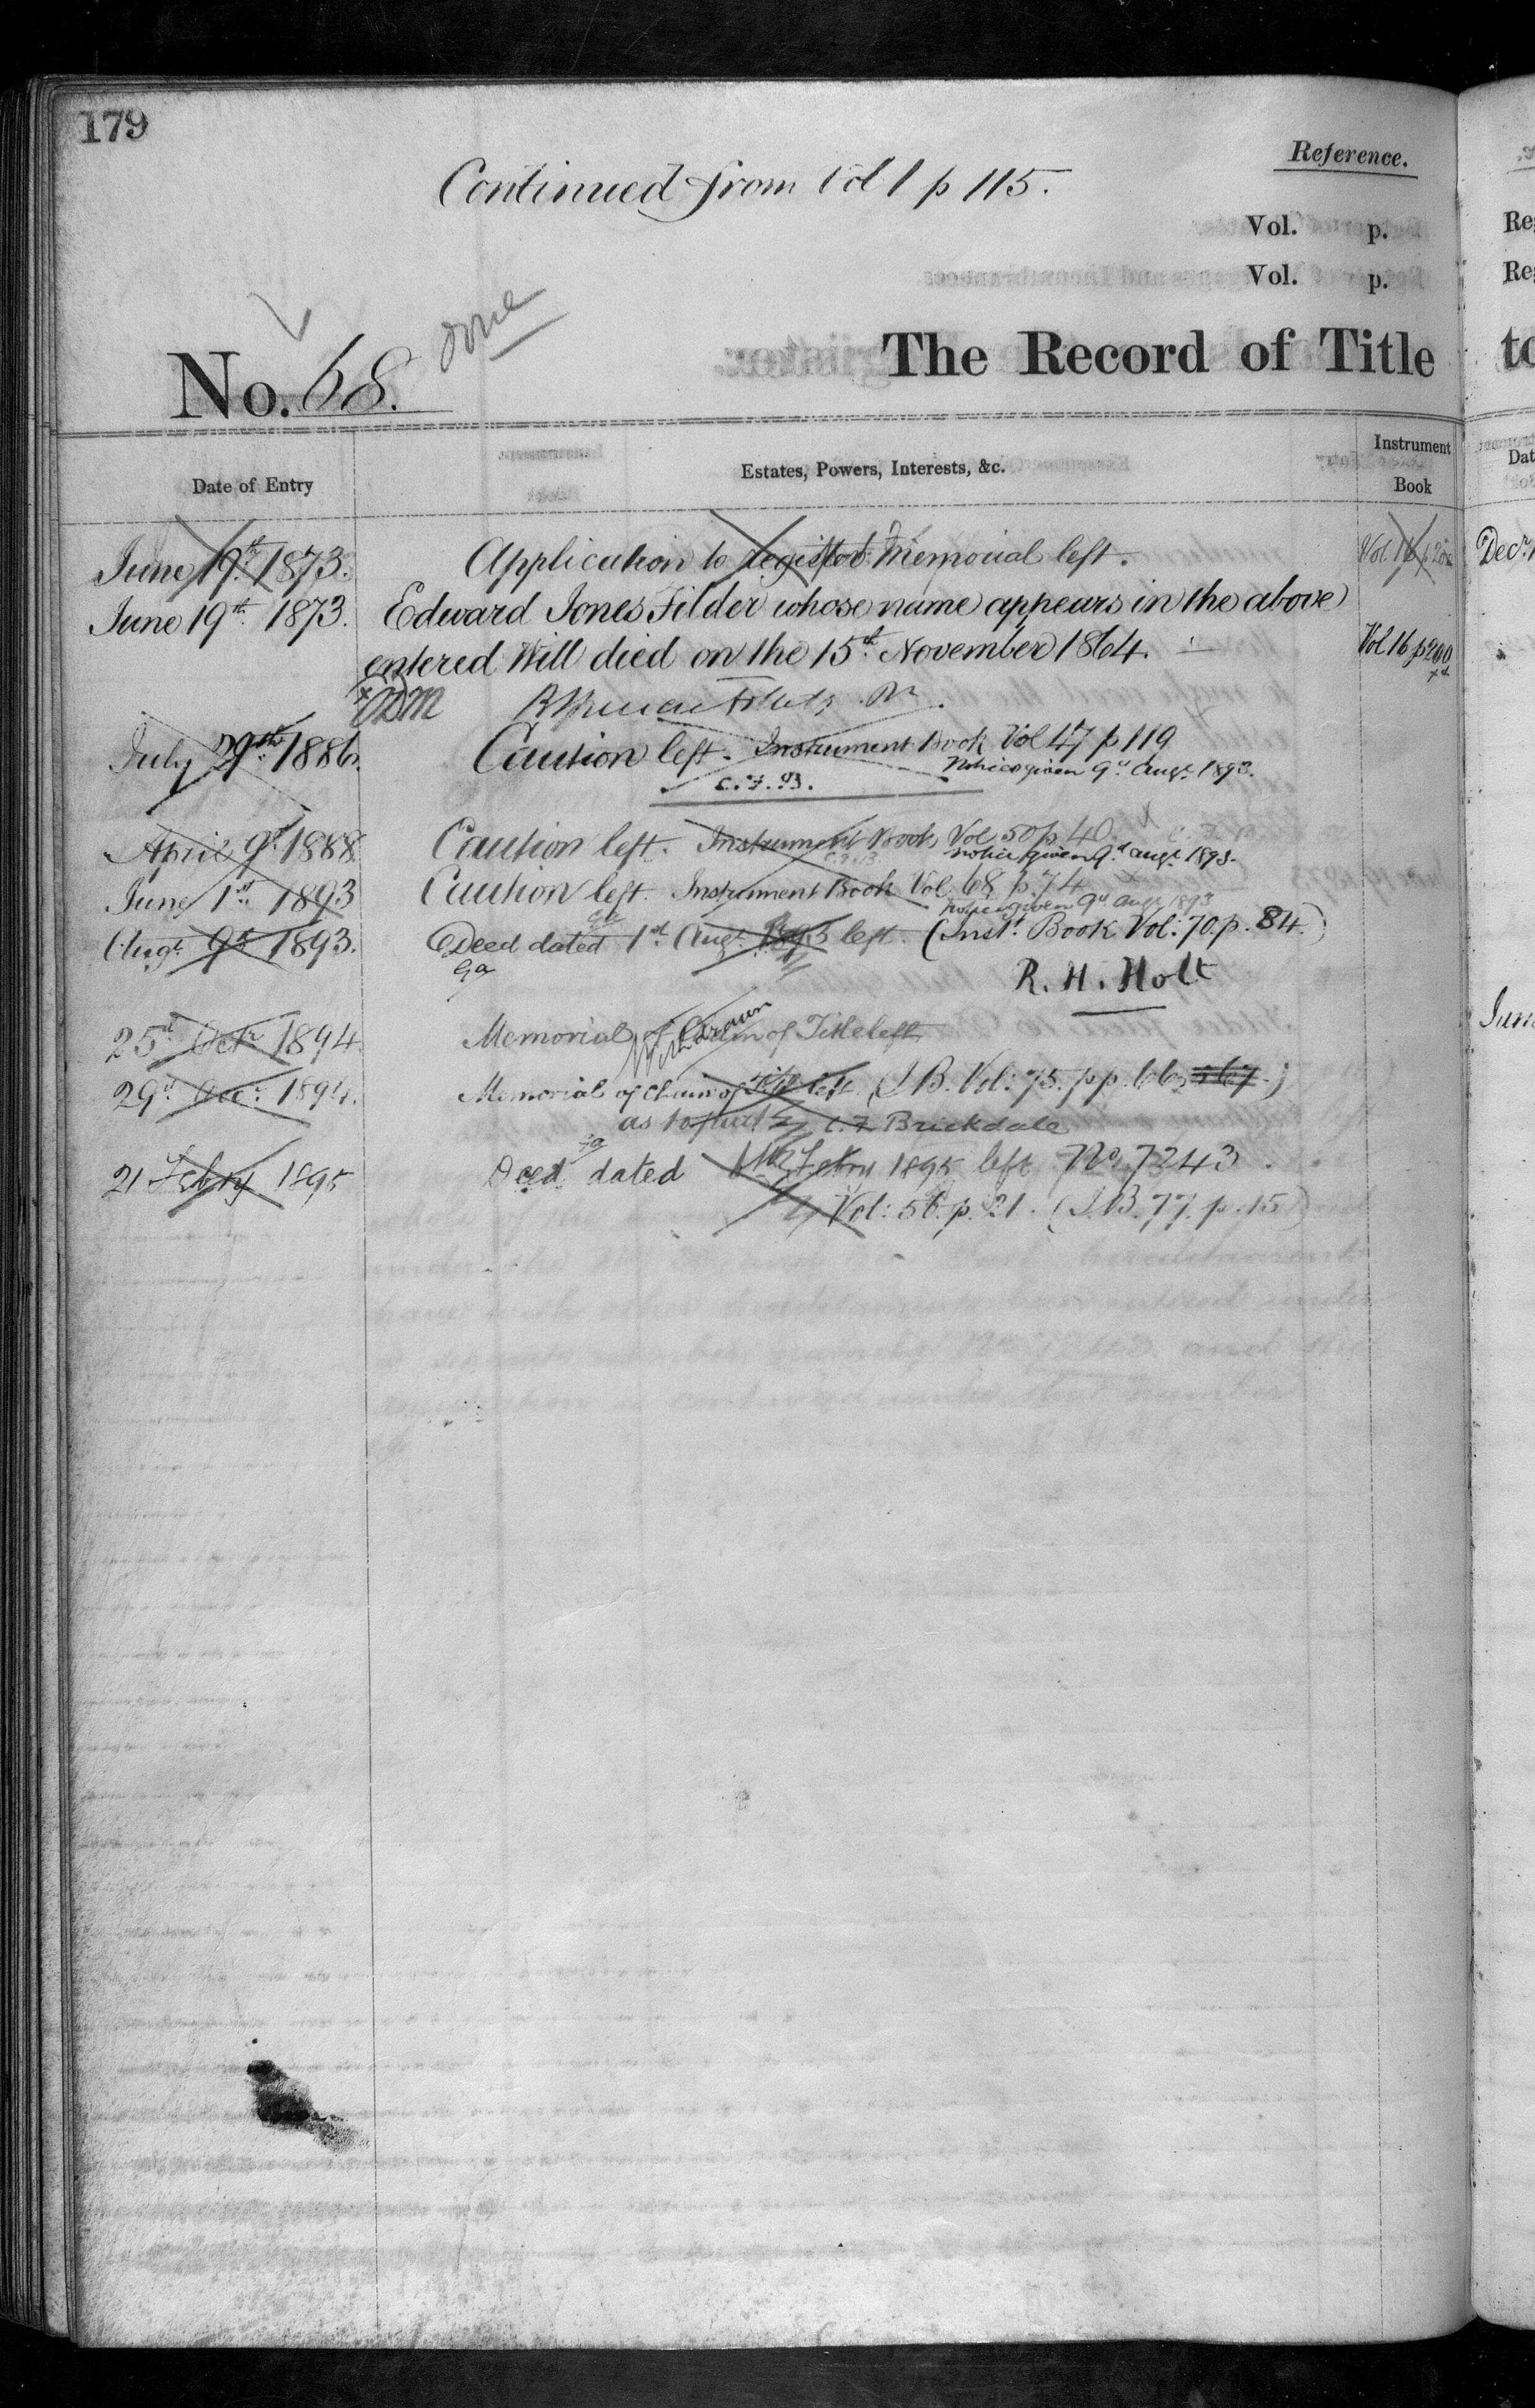 179
Reference.
Continued from Vol 1 p 115.
Vol. p.
Vol. p.
done
No. 68.
The Record of Title
Date of Entry
Estates, Powers, Interests, &c.
Instrument Book
June 19th 1873. Application to register Memorial left. Vol. 16 p
June 19th 1873. Edward Jones Filder whose name appears in the above
entered Will died on the 15th November 1864. Vol 16 p 260
July 29th 1886. Caution left. Instrument Book Vol 47 p 119
Notice given 9th Augt. 1893.
C.F.B.
April 9th 1888 Caution left. Instrument Book, Vol 50 p 40.
notice given 9th augt. 1893.
C.F.B
June 1st 1893 Caution left. Instrument Book Vol. 68 p. 74
notice given 9th augt 1893
Augt. 9th 1893. Deed dated 1st Augt. 1893 left. (Inst. Book Vol: 70. p. 84.)
R. H. Holt
25th Octr 1894 Memorial of Chain of Title left
Withdrawn
29th 1894. Memorial of Chain of Title left. (I.B. Vol: 75. pp. 66, & 67.)
as to part C.F. Brickdale
21 Febry 1895 Deed dated Febry 1895 left No. 7243.
Vol: 56. p. 21. (I.B. 77. p. 15)
Re
Re
to
Dat
Decr
June